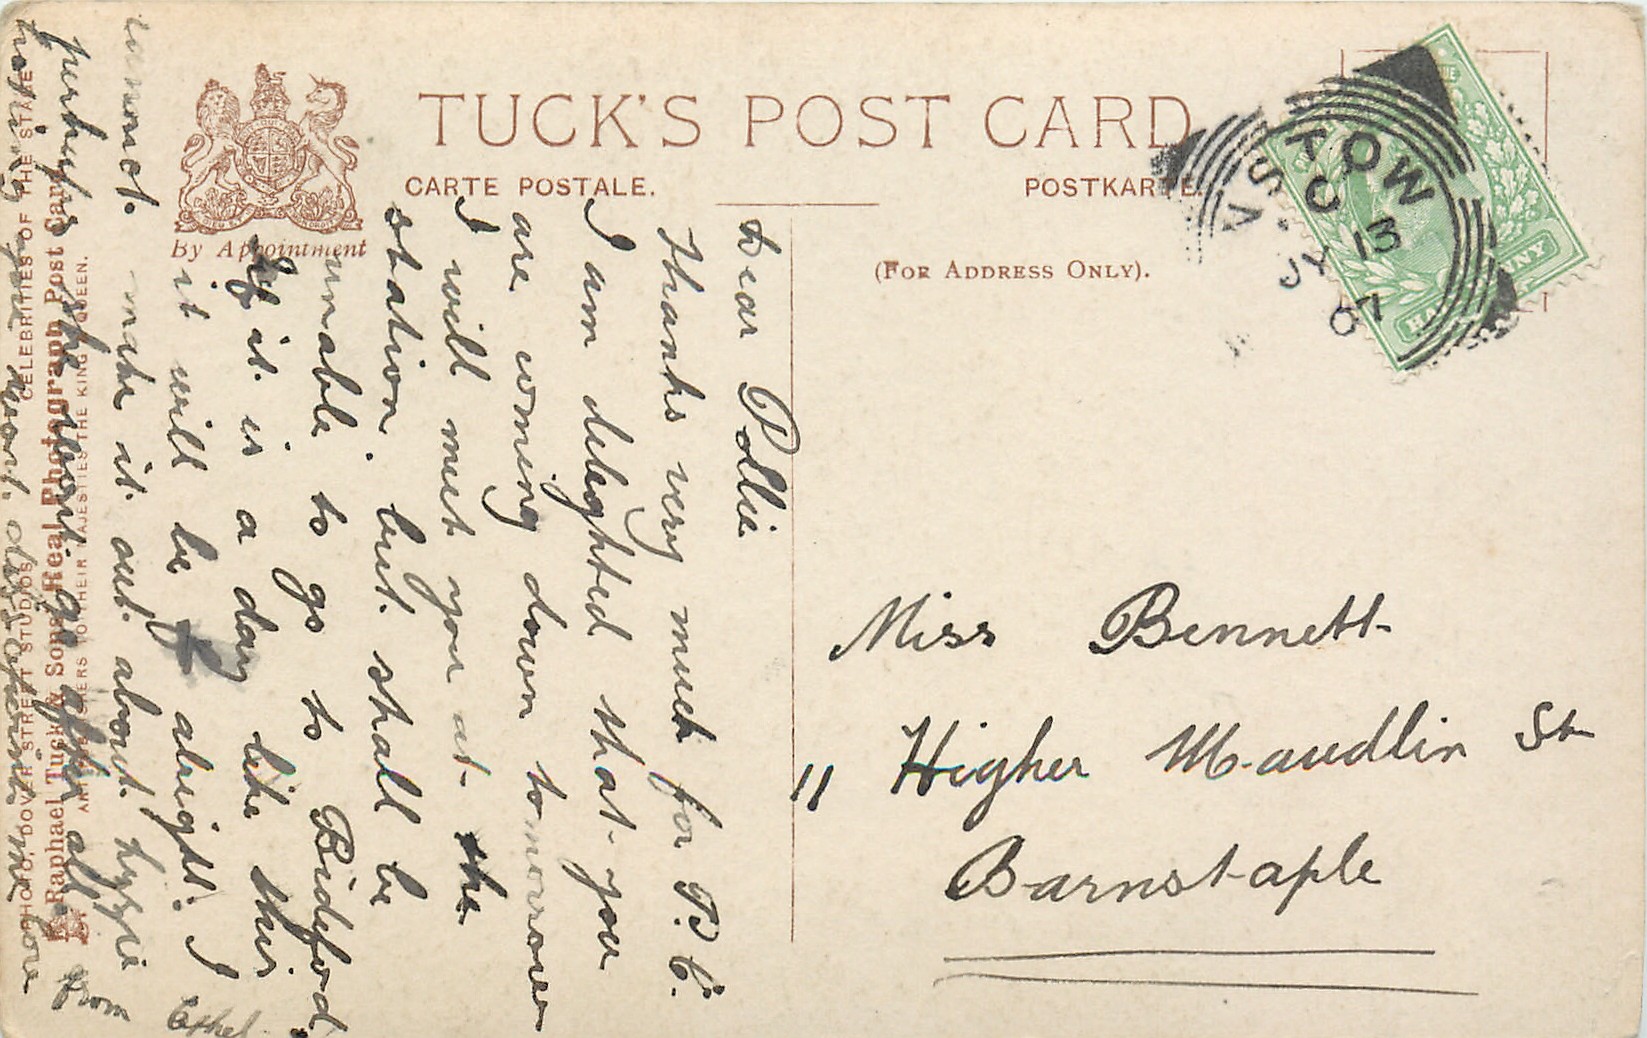 TUCK'S POST CARD
CARTE POSTALE.
POSTKARTE.
By Appointment
(FOR ADDRESS ONLY).
HALFPENNY
JY 13
07
Miss Bennett
11 Higher Maudlin St
Barnstaple
Dear Pollie
Thanks very much for P.C.
I am delighted that you
are coming down tomorrow
I will meet you at the
station. but shall be
unable to go to Bideford
If it is a day like this
it will be alright. I
cannot make it out about Lyzzie
perhaps she wont go after all
hoping you wont disapoint me love
from
Ethel
PHOTO, DOVER STREET STUDIOS. CELEBRITIES OF THE STAGE
Raphael Tuck & Sons' Real Photograph Post Card
ART PUBLISHERS TO THEIR MAJESTIES THE KING & QUEEN.